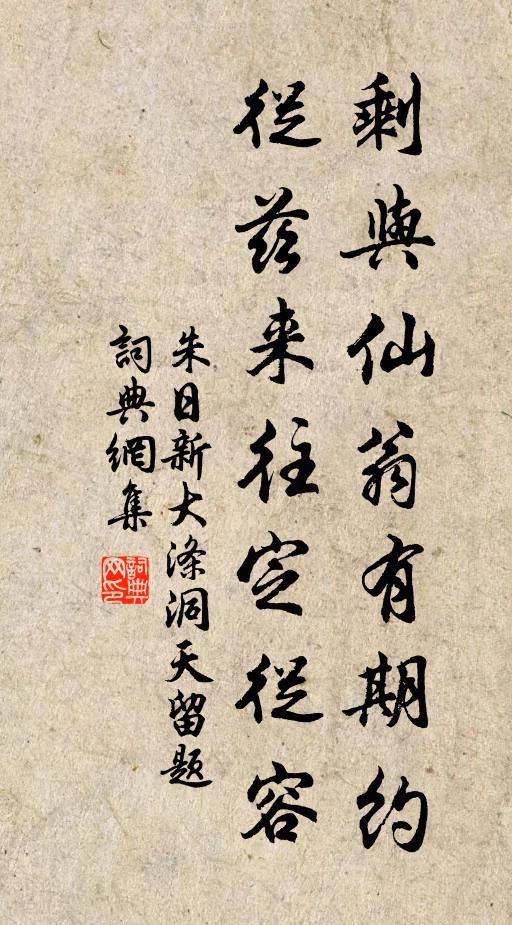 剩與仙翁有期約
從茲来往定從容
朱日新大滌洞天留題
詞典網集
詞典
网印